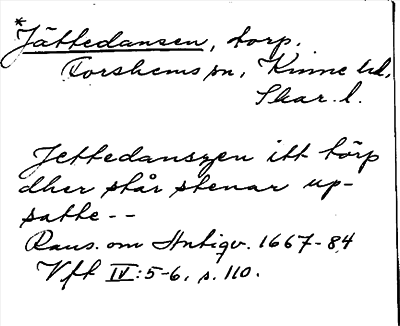 *Jättedansen, torp.
Forshems sn, Kinne hd,
Skar. l.
Jettedanszen itt törp
dher står stenar up-
satte --
Rans. om Antiqv. 1667-84
Vft IV:5-6, s. 110.